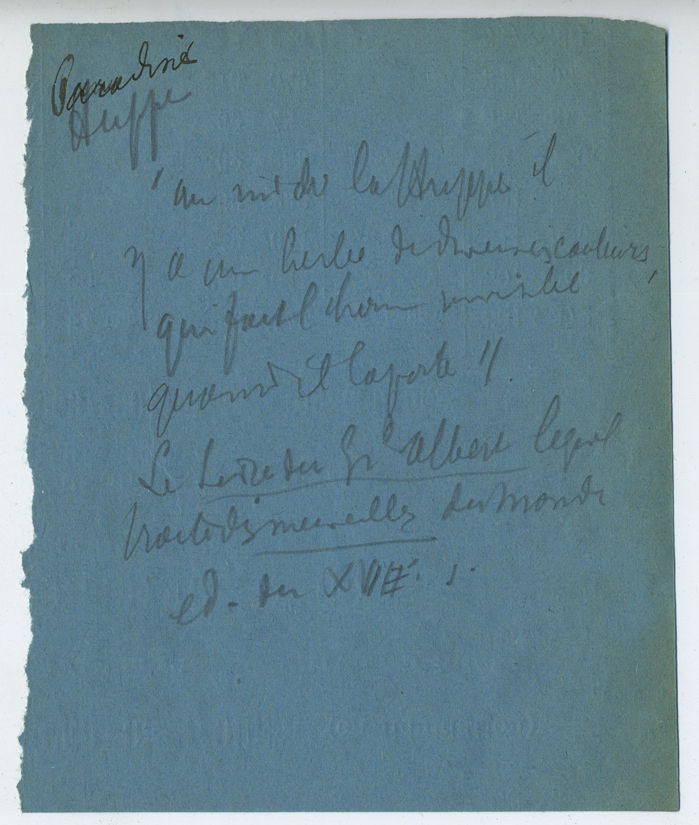 Paradisie
Huppe
"au nid de la Huppe il
y a une herbe de diverses couleurs,
qui fait l'homme invisible
quand il la porte"
Le Livre du Gd Albert lequel
traite des merveilles du monde
ed. du XVIIe s.